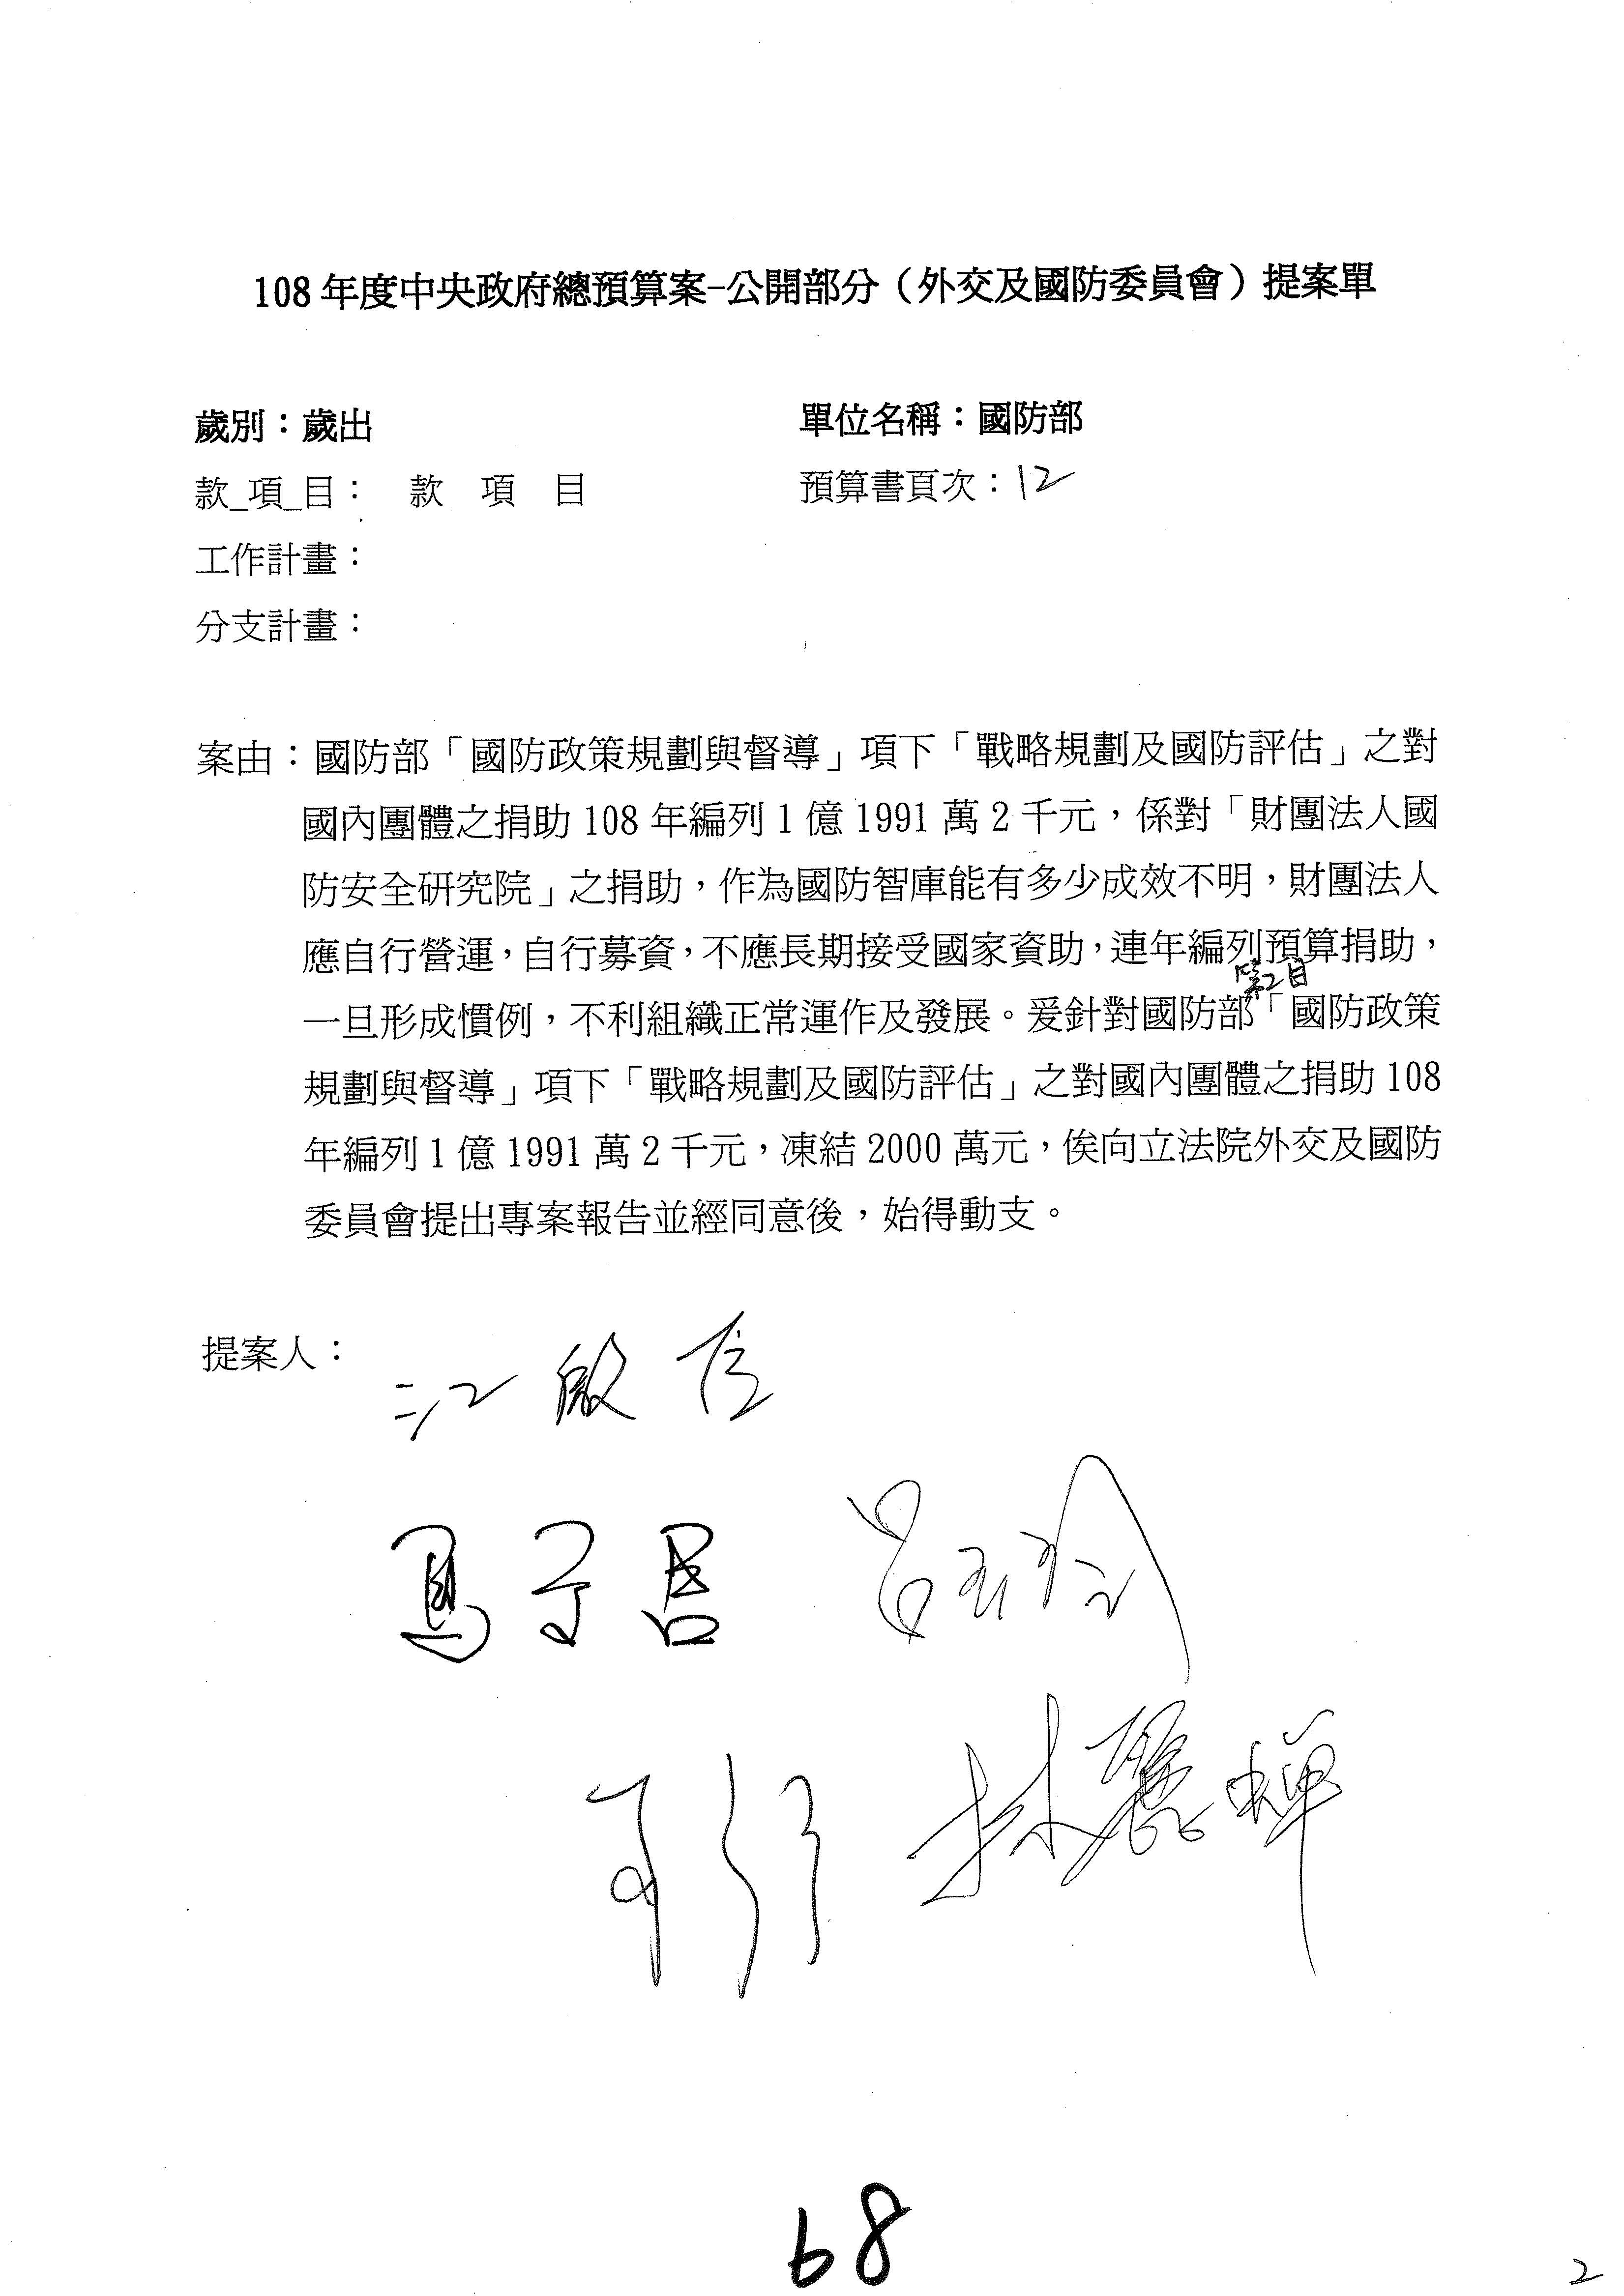 108 年度中央政府總預算案-公開部分（外交及國防委員會）提案單
歲別：歲出
單位名稱：國防部
款_項_目： 款 項 目
預算書頁次：12
工作計畫：
分支計畫：
案由：國防部「國防政策規劃與督導」項下「戰略規劃及國防評估」之對
國內團體之捐助 108 年編列 1 億 1991 萬 2 千元，係對「財團法人國
防安全研究院」之捐助，作為國防智庫能有多少成效不明，財團法人
應自行營運，自行募資，不應長期接受國家資助，連年編列預算捐助，
第2目
一旦形成慣例，不利組織正常運作及發展。爰針對國防部「國防政策
規劃與督導」項下「戰略規劃及國防評估」之對國內團體之捐助 108
年編列 1 億 1991 萬 2 千元，凍結 2000 萬元，俟向立法院外交及國防
委員會提出專案報告並經同意後，始得動支。
提案人：
江啟臣
呂玉玲
林麗蟬
68
2